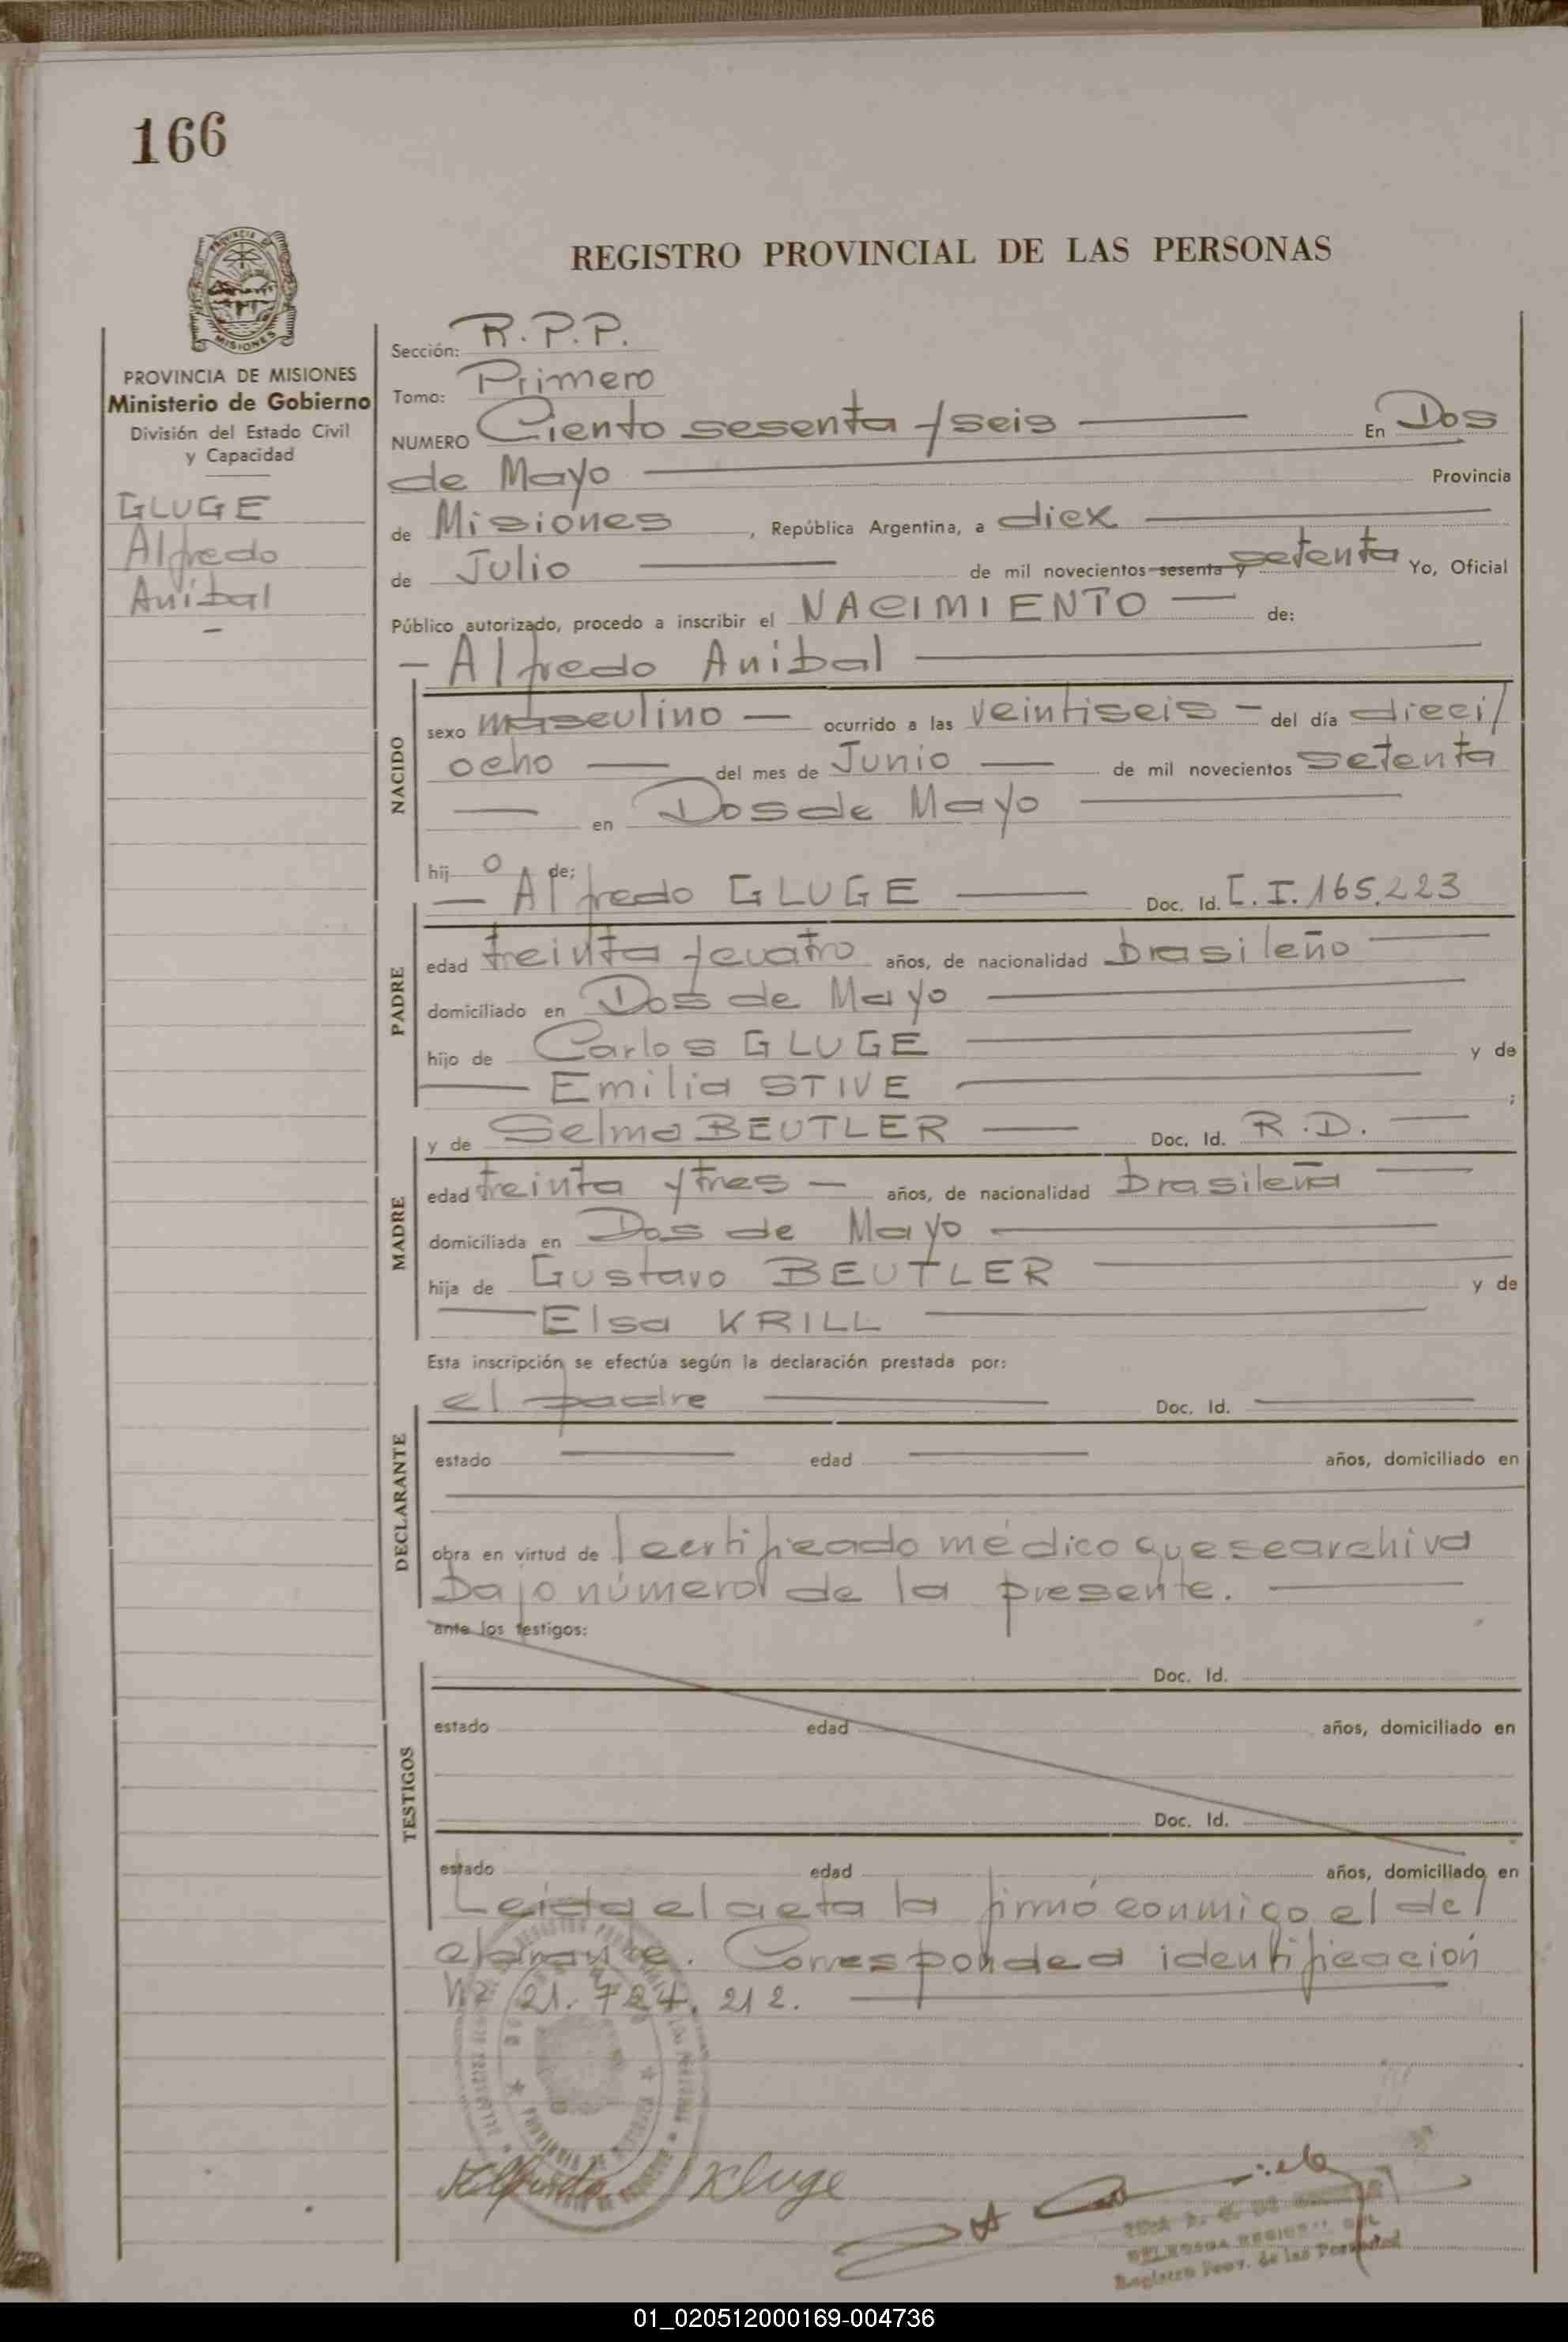 166
REGISTRO PROVINCIAL DE LAS PERSONAS
MISIONES
PROVINCIA DE MISIONES
Ministerio de Gobierno
División del Estado Civil
y Capacidad
GLUGE
Alfredo
Anibal
Sección: R.P.P.
Tomo: Primero
NUMERO Ciento sesenta y seis En Dos
de Mayo Provincia
de Misiones, República Argentina, a diex
de Julio de mil novecientos sesenta y setenta Yo, Oficial
Público autorizado, procedo a inscribir el NACIMIENTO de:
Alfredo Anibal
NACIDO
sexo masculino ocurrido a las veintiseis del día dieci/
ocho del mes de Junio de mil novecientos setenta
en Dos de Mayo
hij o de:
PADRE
Alfredo GLUGE Doc. Id. C.I. 165.223
edad treinta y cuatro años, de nacionalidad brasileño
domiciliado en Dos de Mayo
hijo de Carlos GLUGE y de
Emilia STIVE ;
MADRE
y de Selma BEUTLER Doc. Id. R.D.
edad treinta y tres años, de nacionalidad brasileña
domiciliada en Dos de Mayo
hija de Gustavo BEUTLER y de
Elsa KRILL
Esta inscripción se efectúa según la declaración prestada por:
DECLARANTE
el padre Doc. Id.
estado edad años, domiciliado en
obra en virtud de certificado médico que se archiva
bajo número de la presente.
ante los testigos:
TESTIGOS
Doc. Id.
estado edad años, domiciliado en
Doc. Id.
estado edad años, domiciliado en
Leida el acta la firmó conmigo el de/
clarante. Corresponde a identificación
Nº 21.724.212.
Alfredo Kluge
Registro Prov. de las Personas
01_020512000169-004736